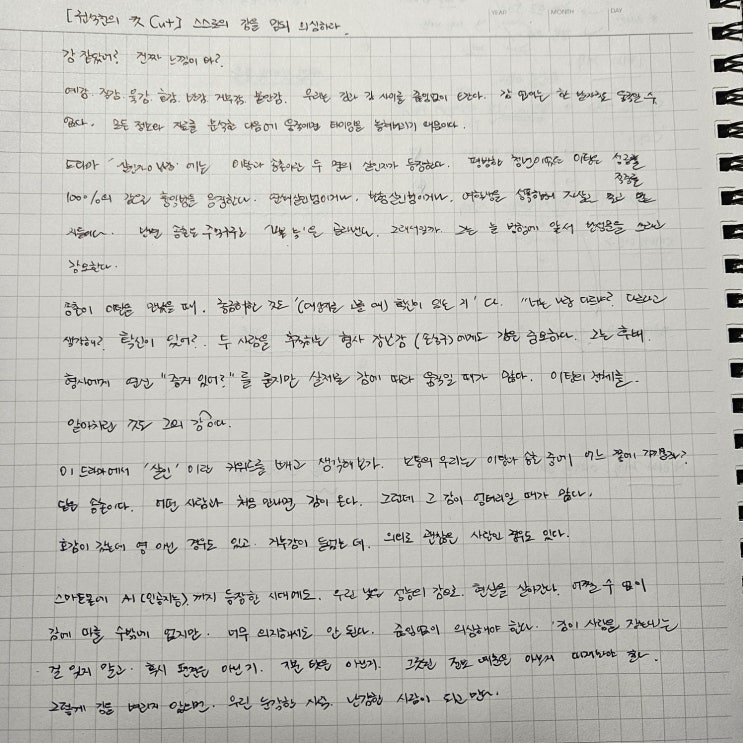 YEAR MONTH DAY
[권석천의 컷 Cut] 스스로의 감을 일단 의심하라.
감 잡았어? 진짜 느낌이 와?
예감. 직감. 육감. 호감. 반감. 거부감. 불안감. 우리는 감과 감 사이를 끊임없이 오간다. 감 없이는 한 발자국도 움직일 수
없다. 모든 정보와 자료를 분석한 다음에 움직이면 타이밍을 놓쳐버리기 때문이다.
드라마 '살인자ㅇ난감' 에는 이탕과 송촌이란 두 명의 살인자가 등장한다. 평범한 청년이었던 이탕은 성공률
적중률
100%의 감으로 흉악범을 응징한다. 연쇄살인범이거나, 보험살인범이거나, 여학생을 성폭행해 자살로 몰고 간
자들이다. 반면 송촌은 주먹구구로 '나쁜 놈'을 골라낸다. 그래서일까. 그는 늘 범행에 앞서 반성문을 쓰라고
강요한다.
송촌이 이탕을 만났을 때, 궁금해한 것도 '(대상자를 고를 때) 확신이 있는 지' 다. "너는 나랑 다르냐? 다르다고
생각해? 확신이 있어? 두 사람을 추적하는 형사 장난감 (손석구)에게도 감은 중요하다. 그는 후배
형사에게 연신 "증거 있어?"를 묻지만 실제로 감에 따라 움직일 때가 많다. 이탕의 정체를
알아차린 것도 그의 감이다.
이 드라마에서 '살인' 이란 키워드를 빼고 생각해보자. 보통의 우리는 이탕과 송촌 중에 어느 쪽에 가까울까?
답은 송촌이다. 어떤 사람과 처음 만나면 감이 온다. 그런데 그 감이 엉터리일 때가 많다.
호감이 갔는데 영 아닌 경우도 있고. 거부감이 들었는 데. 의외로 괜찮은 사람인 경우도 있다.
스마트폰에 AI (인공지능) 까지 등장한 시대에도. 우린 낮은 성능의 감으로. 현실을 살아간다. 어쩔 수 없이
감에 따를 수밖에 없지만. 너무 의지해서도 안 된다. 끊임없이 의심해야 한다. '감이 사람을 잡는다'는
걸 잊지 말고. 혹시 편견은 아닌 지. 지문 탓은 아닌지. 그릇된 정보 때문은 아닌지 따져봐야 한다.
그렇게 감을 벼리지 않으면. 우린 순식간 사이. 난감한 사람이 되고 만다.